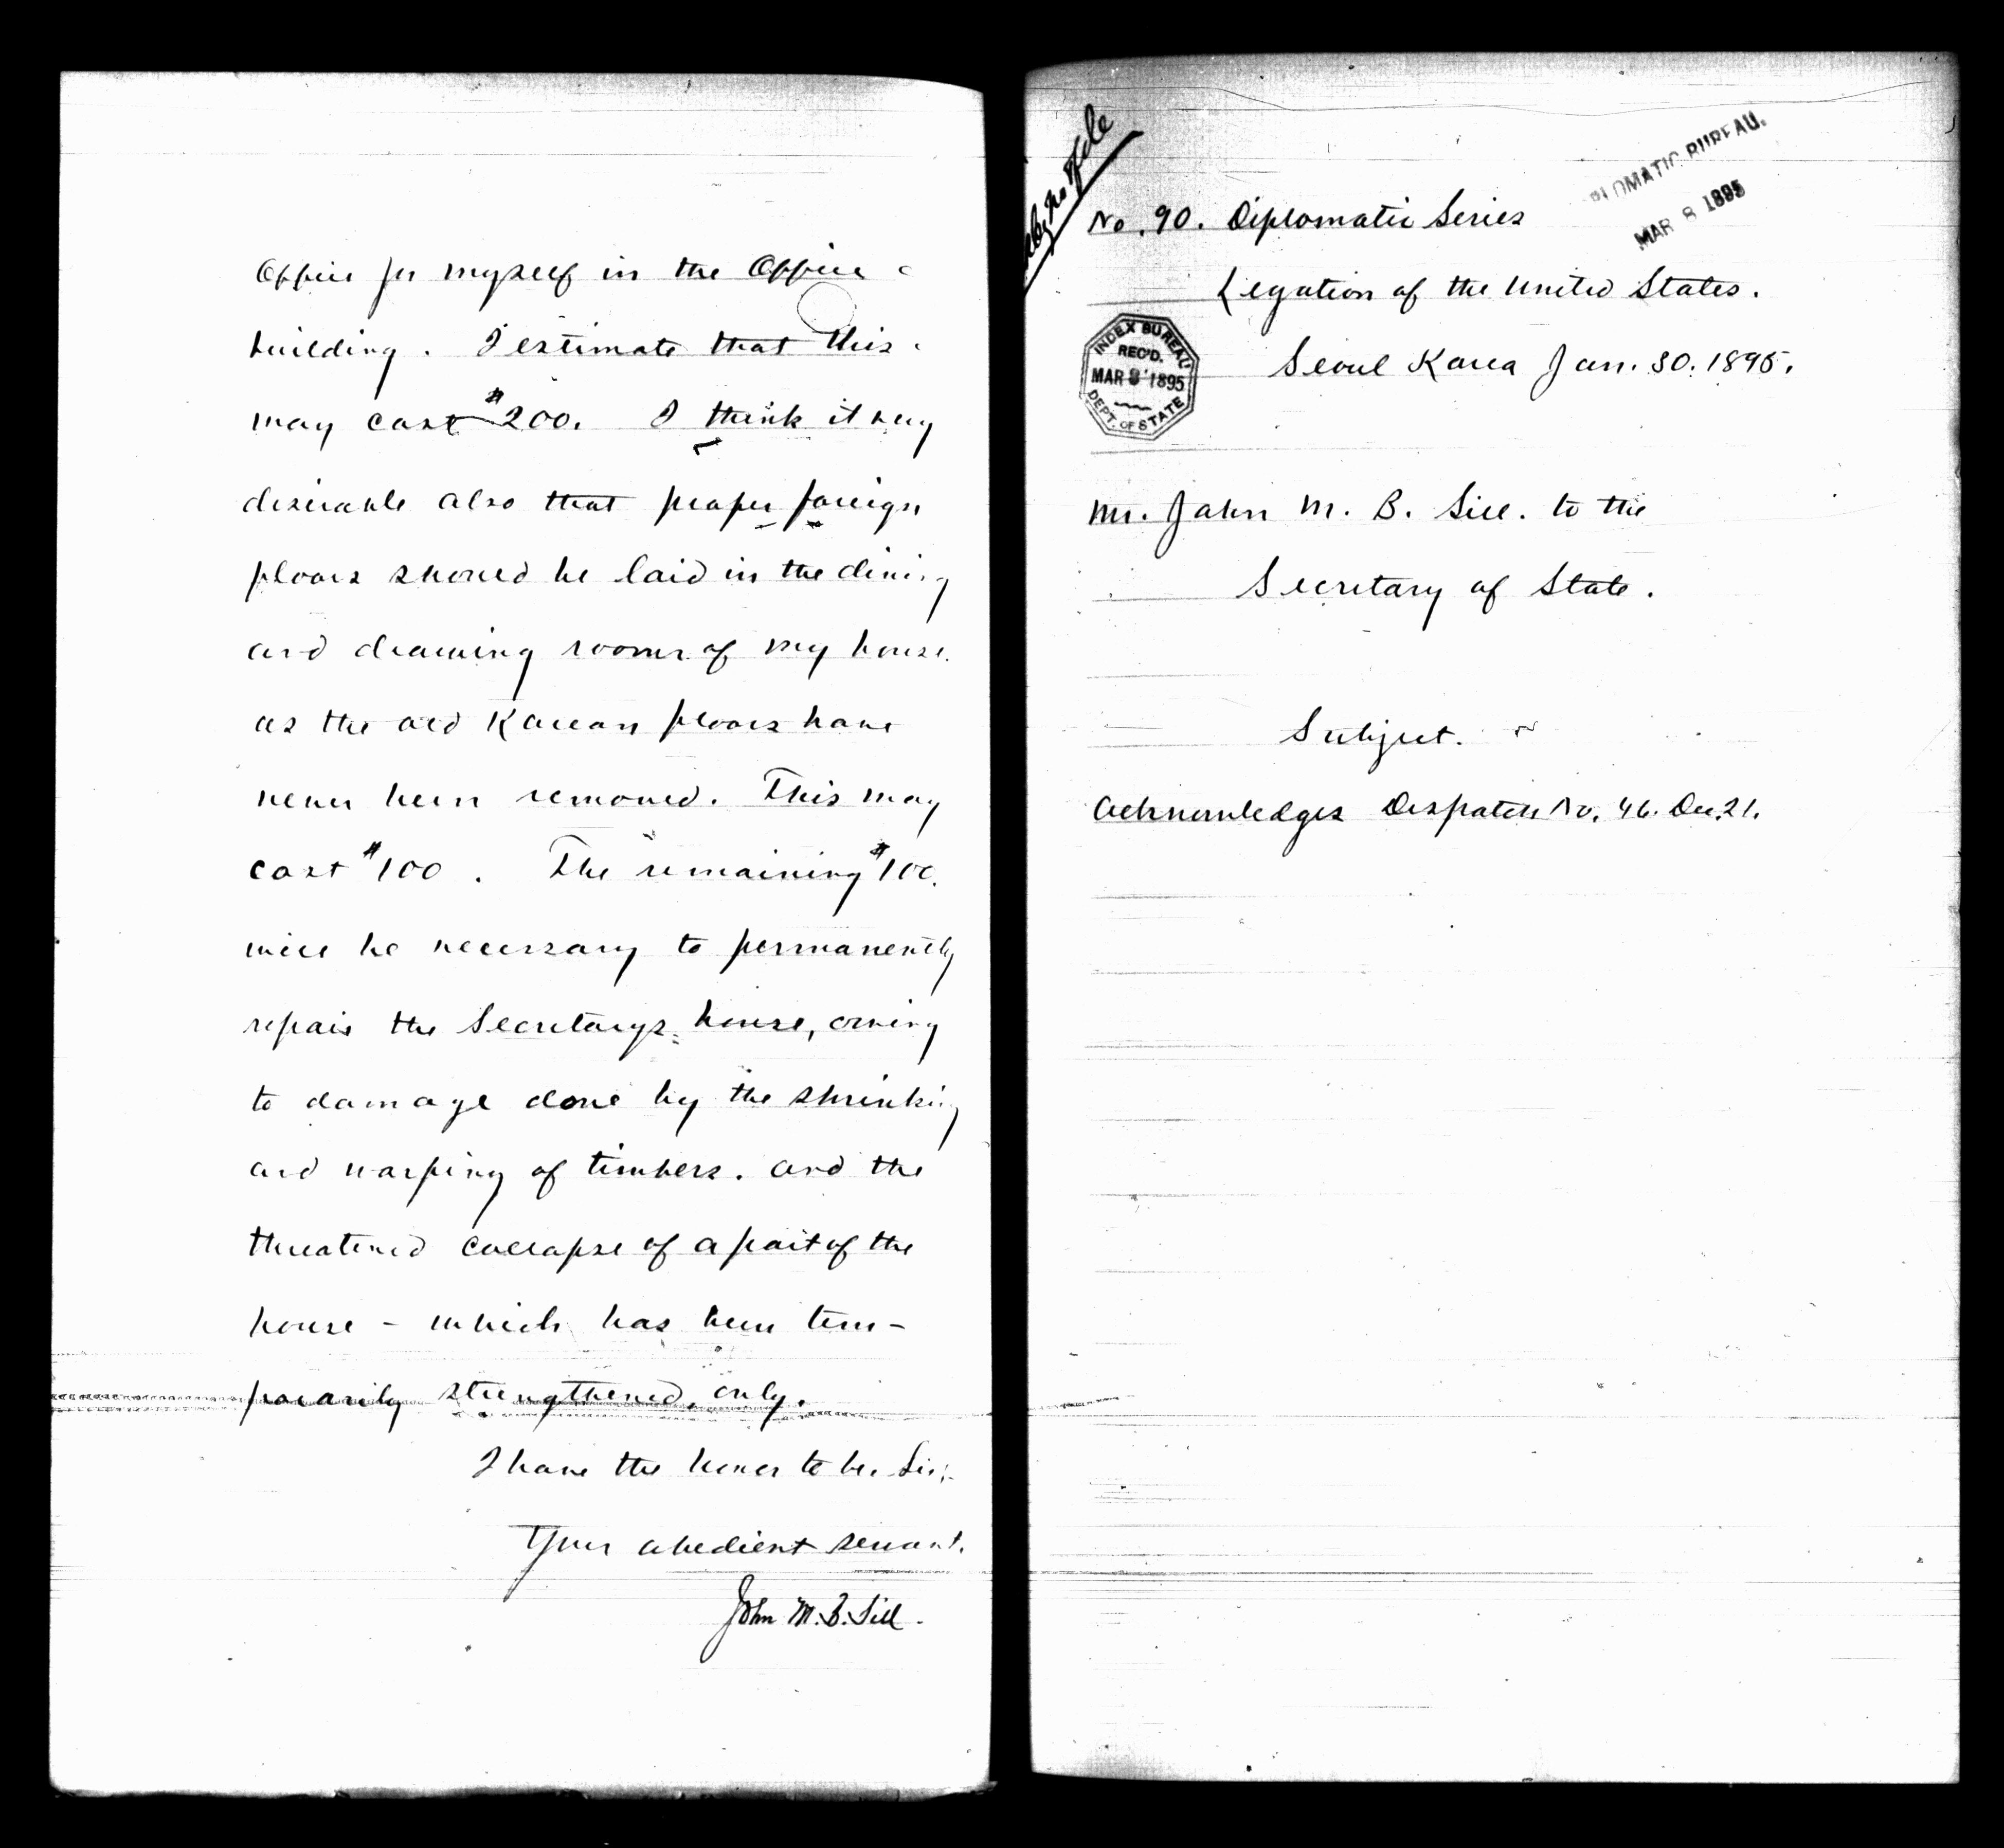 Office for myself in the Office
building. I estimate that this
may cost $200. I think it very
desirable also that proper foreign
floors should be laid in the dining
and drawing rooms of my house.
as the old Korean floors have
never been removed. This may
cost $100. The remaining $100.
will be necessary to permanently
repair the Secretarys house, owing
to damage done by the shrinking
and warping of timbers. and the
threatened collapse of a part of the
house - which has been tem-
porarily strengthened, only.
I have the honor to be. Sir;
Your obedient servant.
John M. B. Sill.
DIPLOMATIC BUREAU.
MAR 8 1895
No. 90. Diplomatic Series
Legation of the United States.
Seoul Korea Jan. 30. 1895.
INDEX BUREAU
REC'D.
MAR 8 1895
DEPT. OF STATE
Mr. John M. B. Sill. to the
Secretary of State.
Subject.
Acknowledges Despatch No. 46. Dec. 21.